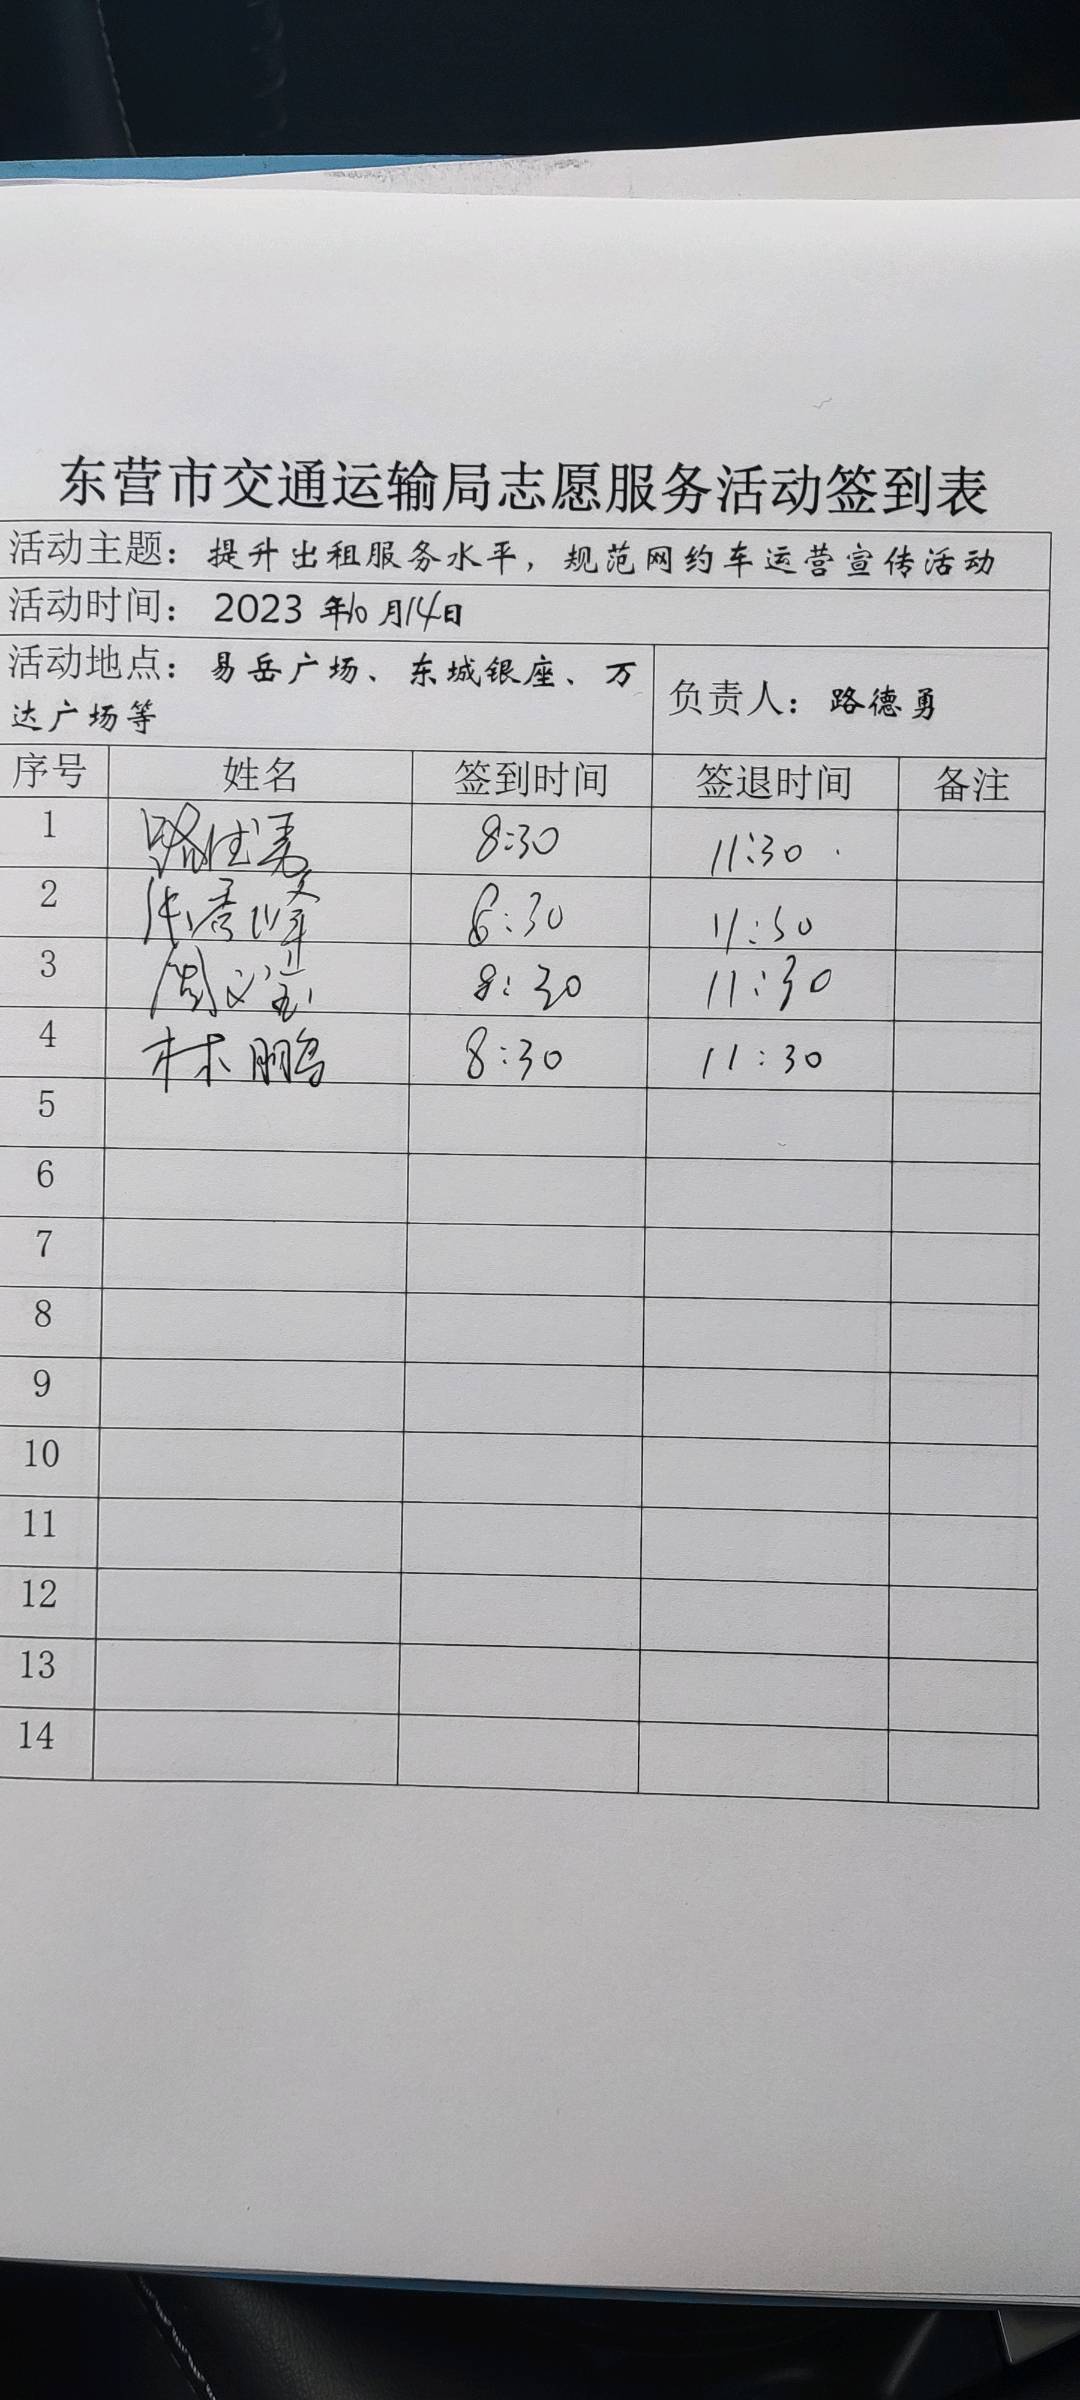 东营市交通运输局志愿服务活动签到表
活动主题：提升出租服务水平，规范网约车运营宣传活动
活动时间： 2023 年10 月14日
活动地点：易岳广场、东城银座、万
达广场等
负责人：路德勇
序号 姓名 签到时间 签退时间 备注
1 路德勇 8:30 11:30
2 8:30 11:30
3 周 8:30 11:30
4 林鹏 8:30 11:30
5
6
7
8
9
10
11
12
13
14